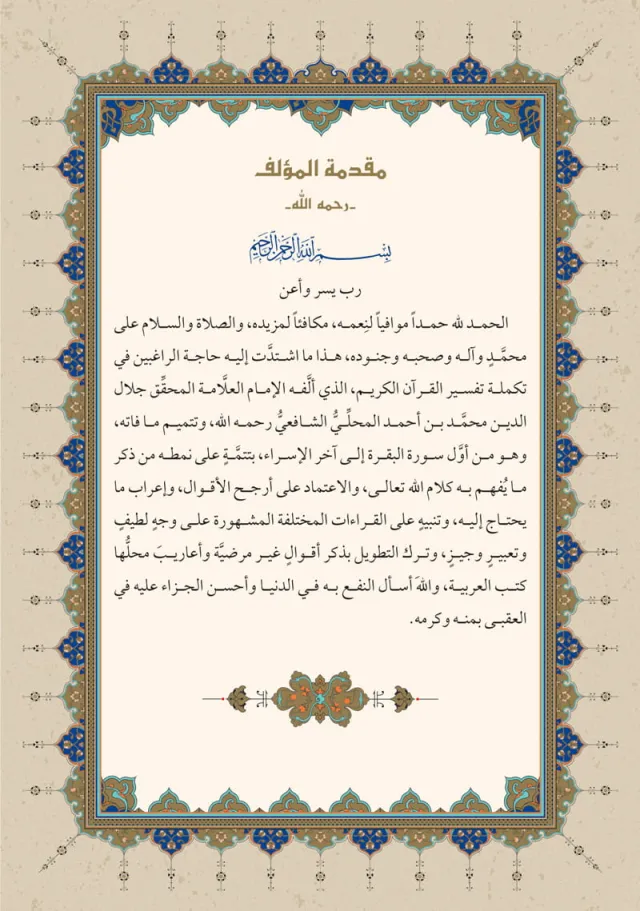 مقدمة المؤلف
-رحمه الله-
بِسْمِ اللَّهِ الرَّحْمَنِ الرَّحِيمِ
رب يسر وأعن
الحمد لله حمداً موافياً لنِعمه، مكافئاً لمزيده، والصلاة والسلام على
محمَّدٍ وآله وصحبه وجنوده، هذا ما اشتدَّت إليه حاجة الراغبين في
تكملة تفسير القرآن الكريم، الذي ألَّفه الإمام العلَّامة المحقِّق جلال
الدين محمَّد بن أحمد المحلِّيُّ الشافعيُّ رحمه الله، وتتميم ما فاته،
وهو من أوَّل سورة البقرة إلى آخر الإسراء، بتتمَّةٍ على نمطه من ذكر
ما يُفهم به كلام الله تعالى، والاعتماد على أرجح الأقوال، وإعراب ما
يحتاج إليه، وتنبيهٍ على القراءات المختلفة المشهورة على وجهٍ لطيفٍ
وتعبيرٍ وجيزٍ، وترك التطويل بذكر أقوالٍ غير مرضيَّة وأعاريبَ محلُّها
كتب العربية، واللهَ أسأل النفع به في الدنيا وأحسن الجزاء عليه في
العقبى بمنه وكرمه.